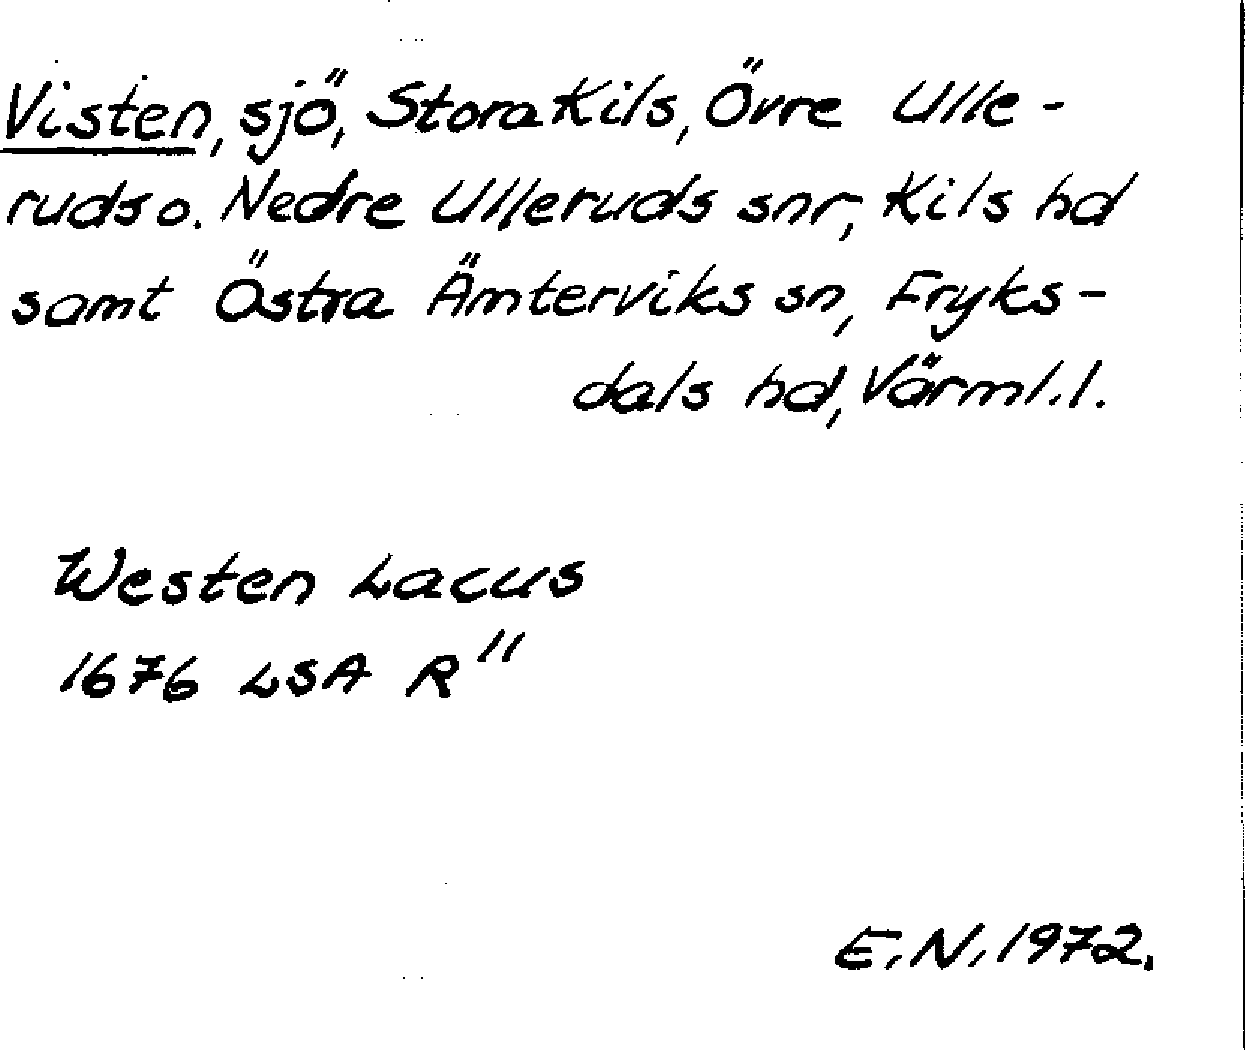 Visten, sjö, Stora Kils, Övre Ulle-
ruds o. Nedre Ulleruds snr, Kils hd
samt Östra Ämterviks sn, Fryks-
dals hd, Värml. l.
Westen Lacus
1676 LSA R"
E.N. 1972.